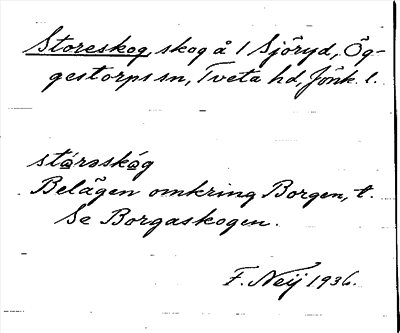 Storeskog, skog å 1 Sjöryd, Ög-
gestorps sn, Tveta hd, Jönk. l.
stórəskóg
Belägen omkring Borgen, t.
Se Borgaskogen.
F. Neij 1936.